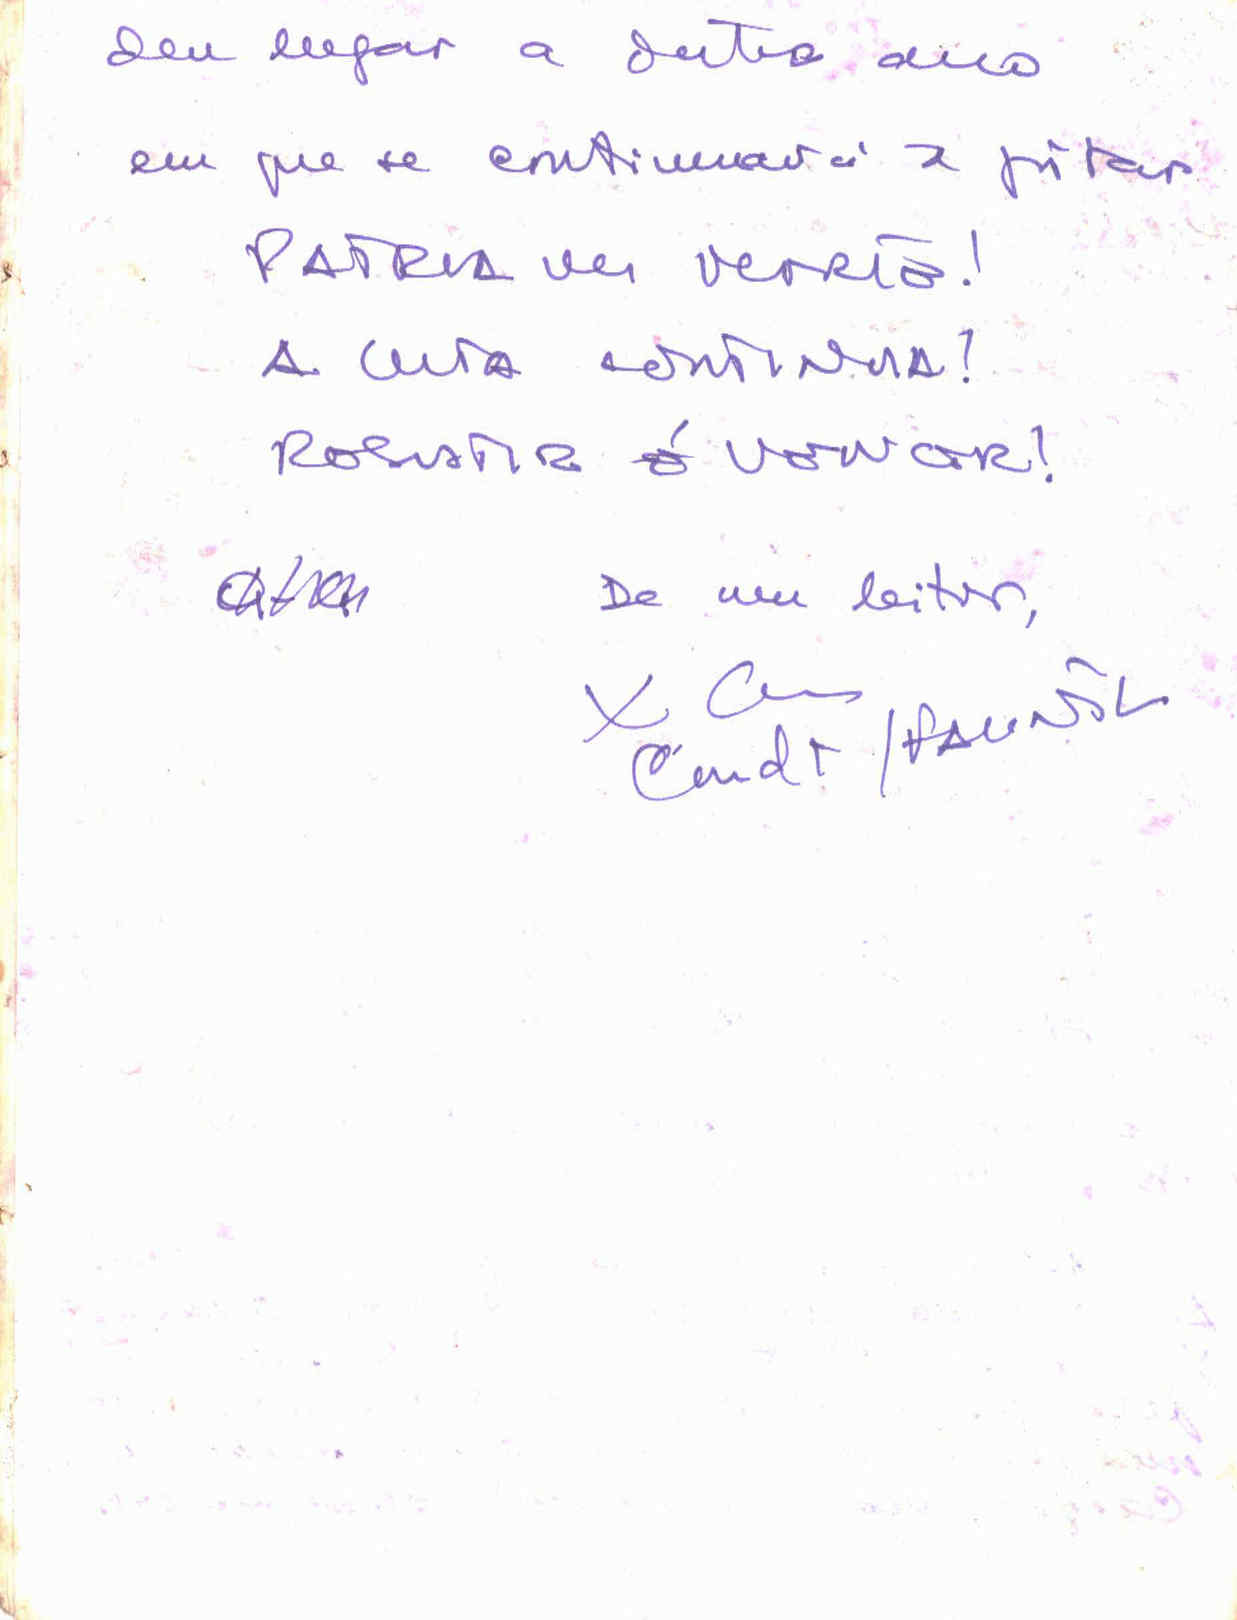 deu lugar a outro ano
em que se continuará a gritar
PATRIA OU MORTE!
A LUTA CONTINUA!
RESISTIR É VENCER!
De um leitor,